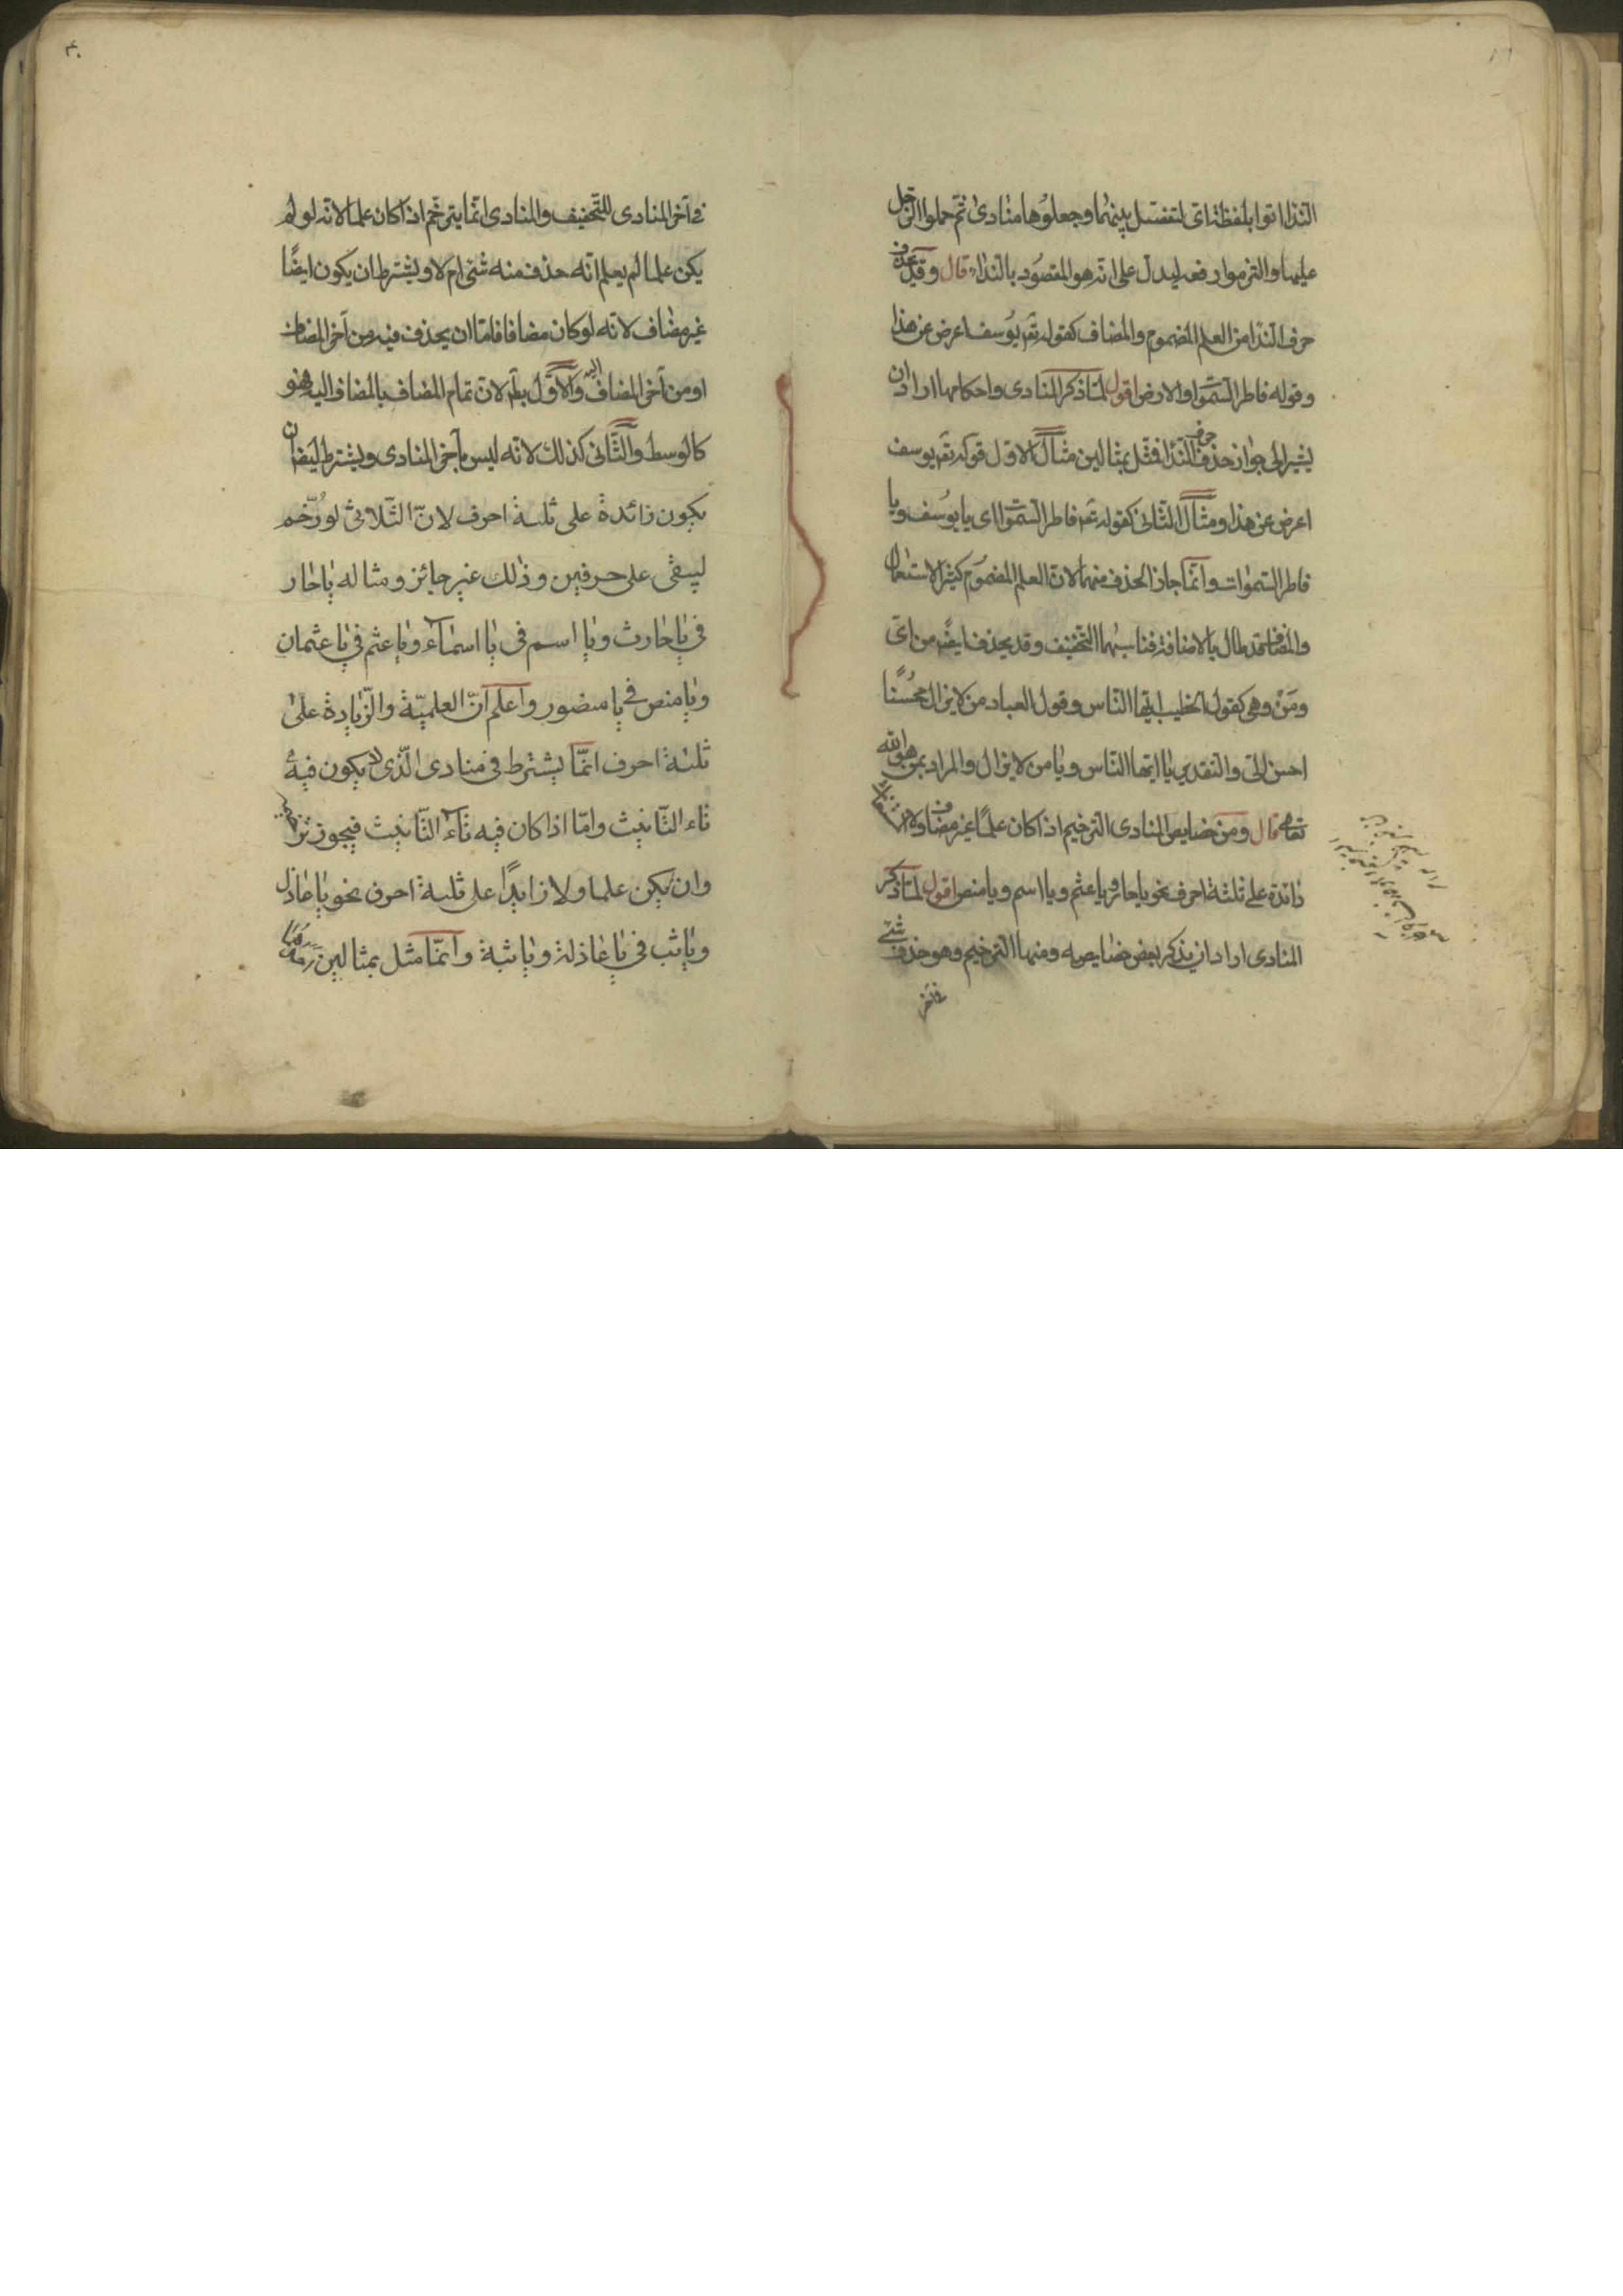 النداء اتوا بلفظة اى لتفصل بينهما وجعلوها منادى ثم حملوا الرجل
عليها والتزموا رفعه ليدل على انه هو المقصود بالنداء قال وقد يحذف
حرف النداء من العلم المضموم والمضاف كقوله تع يوسف اعرض عن هذا
وقوله فاطر السموات والارض اقول لما ذكر المنادى واحكامها اراد ان
يشير الى جواز حذف حرف النداء فمثل بمثالين مثال الاول قوله تع يوسف
اعرض عن هذا ومثال الثانى كقوله تع فاطر السموات اى يا يوسف ويا
فاطر السموات وانما جاز الحذف منهما لان العلم المضموم كثير الاستعمال
والمضاف قد طال بالاضافة فناسبهما التخفيف وقد يحذف ايضا من اى
ومن وهى كقول الخطيب ايها الناس وقول العباد من لا يزال محسنا
احسن الى والتقدير يا ايها الناس ويا من لا يزال والمراد بمن هو الله
تعالى قال ومن خصايص المنادى الترخيم اذا كان علما غير مضاف ولا
زائدة على ثلثة احرف نحو يا حار ويا عثم ويا اسم ويا منص اقول لما ذكر
المنادى اراد ان يذكر بعض خصايصه ومنها الترخيم وهو حذف شئ
فى آخر
٣٠
فى آخر المنادى للتخفيف والمنادى انما يترخم اذا كان علما لانه لو لم
يكن علما لم يعلم انه حذف منه شئ ام لا ويشترط ان يكون ايضًا
غير مضاف لانه لو كان مضافا فاما ان يحذف فيه من آخر المضاف
او من آخر المضاف اليه والاول بط لان تمام المضاف بالمضاف اليه فهو
كالوسط والثانى كذلك لانه ليس بآخر المنادى ويشترط ايضا ان
يكون زائدة على ثلثة احرف لان الثلاثى لو رُخّم
ليبقى على حرفين وذلك غير جائز ومثاله يا حار
فى يا حارث ويا اسم فى يا اسماء ويا عثم فى يا عثمان
ويا منص فى يا منصور واعلم ان العلمية والزيادة على
ثلثة احرف انما يشترط فى منادى الذى لا يكون فيه
تاء التانيث واما اذا كان فيه تاء التانيث فيجوز ترخيمه
وان لم يكن علما ولا زايدًا على ثلثة احرف نحو يا عاذل
ويا ثب فى يا عاذلة ويا ثبة وانما مثل بمثالين